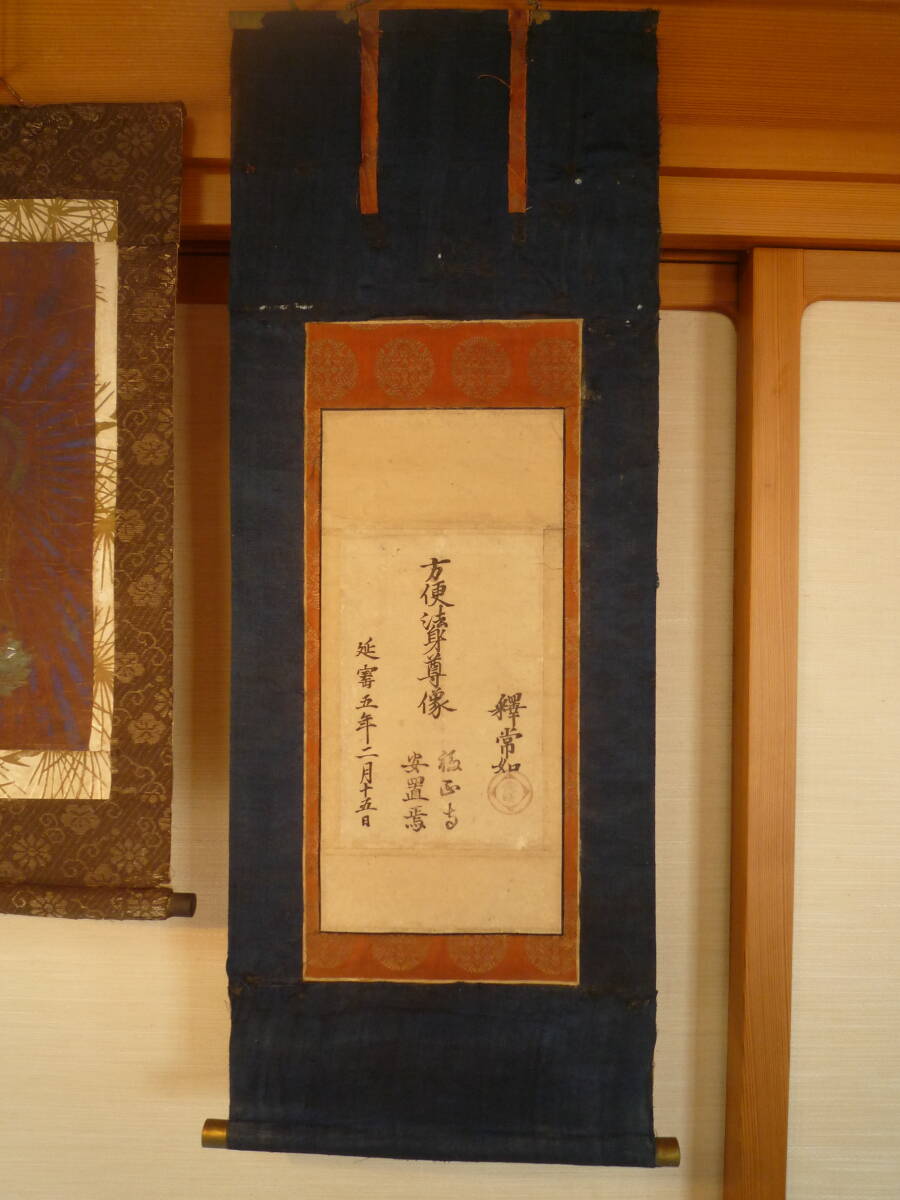 釋常如
方便法身尊像
安置焉
延寳五年二月十五日